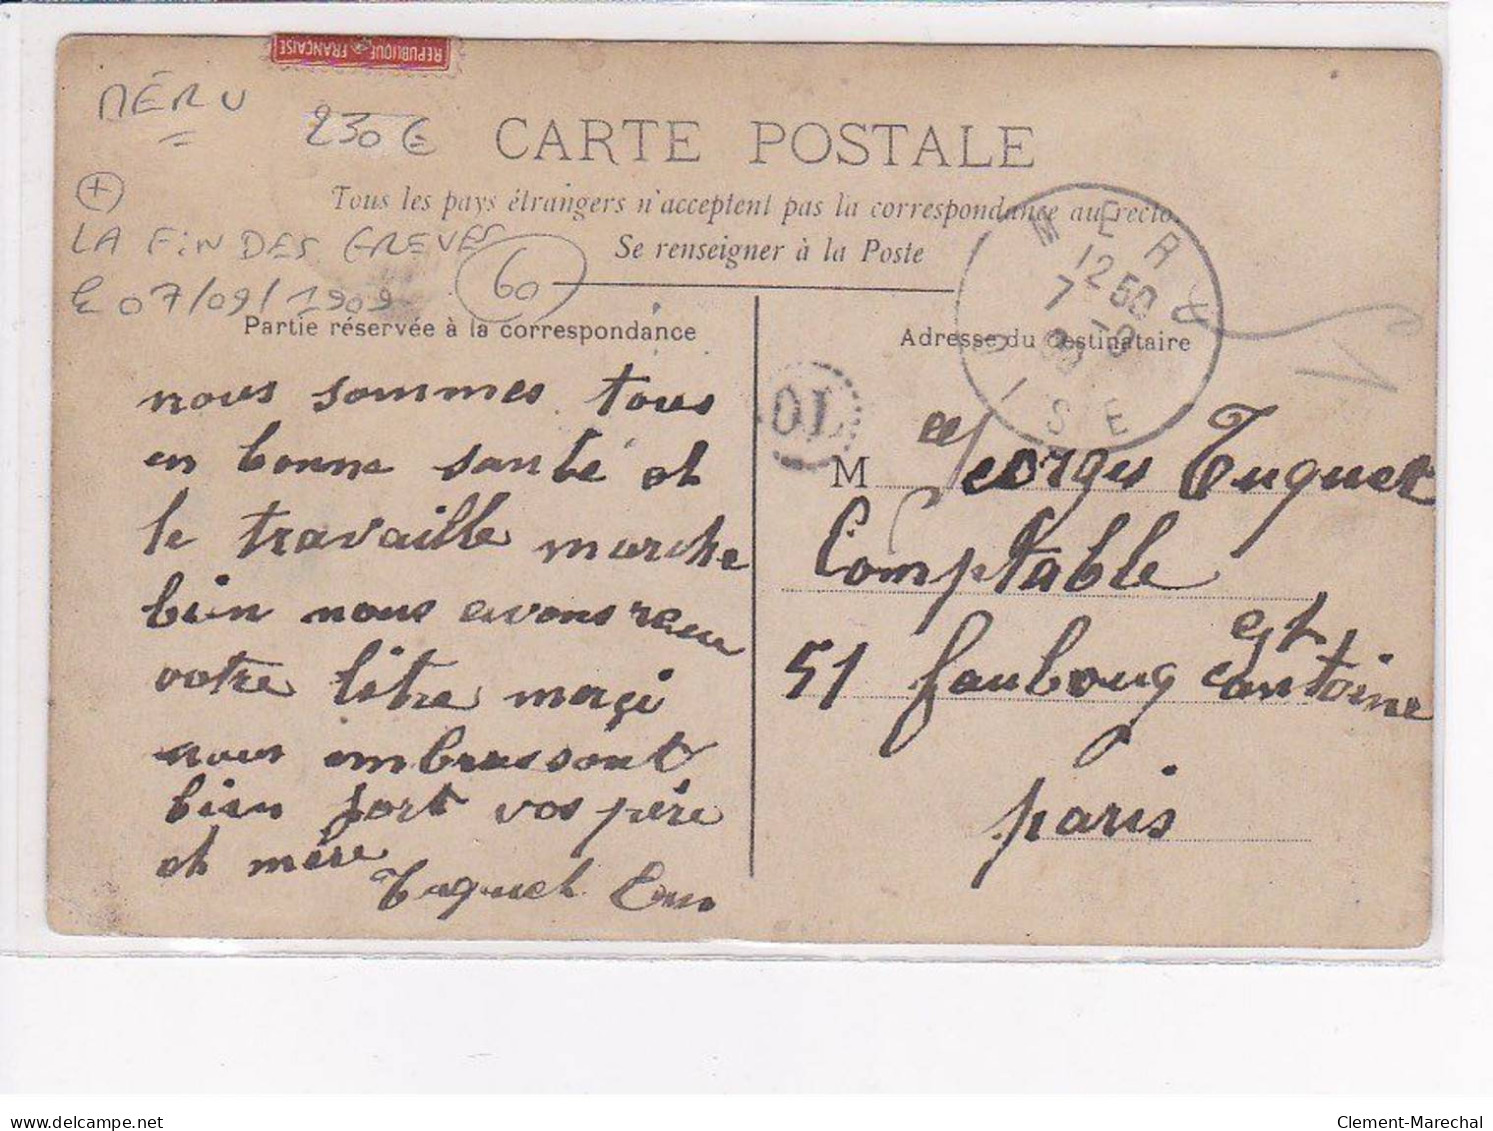 REPUBLIQUE FRANÇAISE
MÉRU
230€
CARTE POSTALE
Tous les pays étrangers n'acceptent pas la correspondance au recto.
Se renseigner à la Poste
+
LA FIN DES GREVES
le 07/09/1909
60
MERU
12 50
7 -9
09
OISE
Partie réservée à la correspondance
nous sommes tous
en bonne santé et
le travaille marche
bien nous avons recu
votre lètre merçi
nous embrassont
bien fort vos père
et mère
Tuquet
Adresse du Destinataire
OL
M Georges Tuquet
Comptable
51 faubourg st antoine
paris
delcampe.net
Clement-Marechal